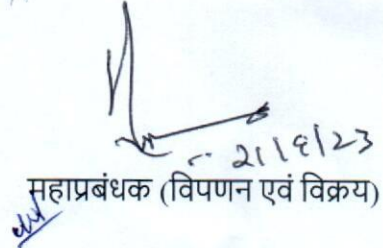 21/6/23
महाप्रबंधक (विपणन एवं विक्रय)